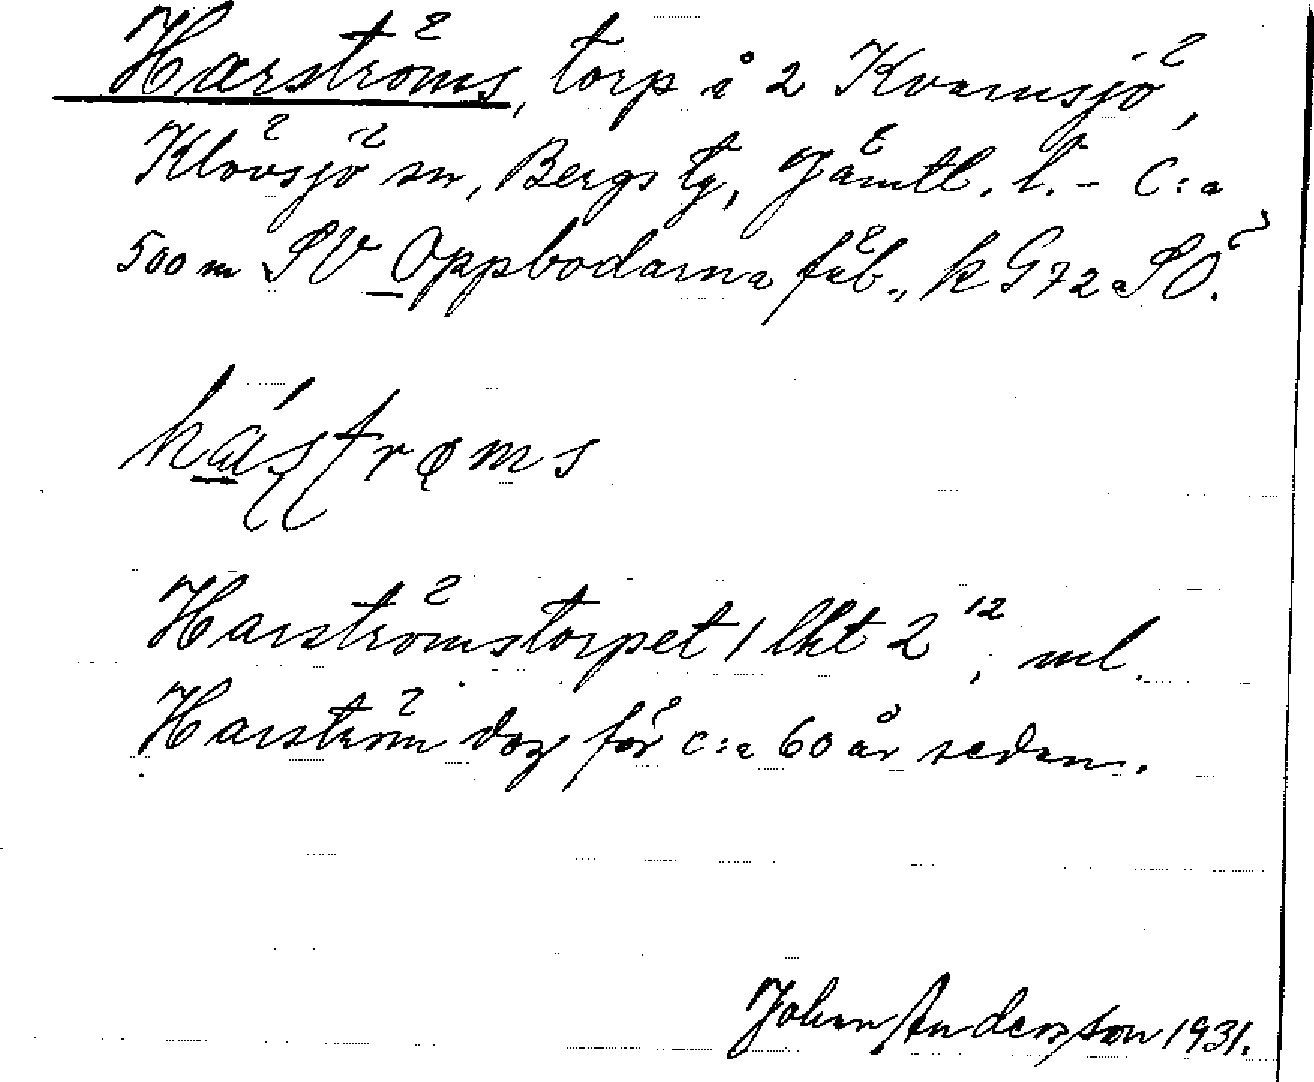 Harströms, torp å 2 Kvarnsjö,
Klövsjö sn, Bergs tg, Jämtl. l. - C:a
500 m SV Oppbodarna fäb., k G 72 a SÖ.
Harströmstorpet 1 lht 2¹², ml.
Harström dog för c:a 60 år sedan.
Johan Andersson 1931.